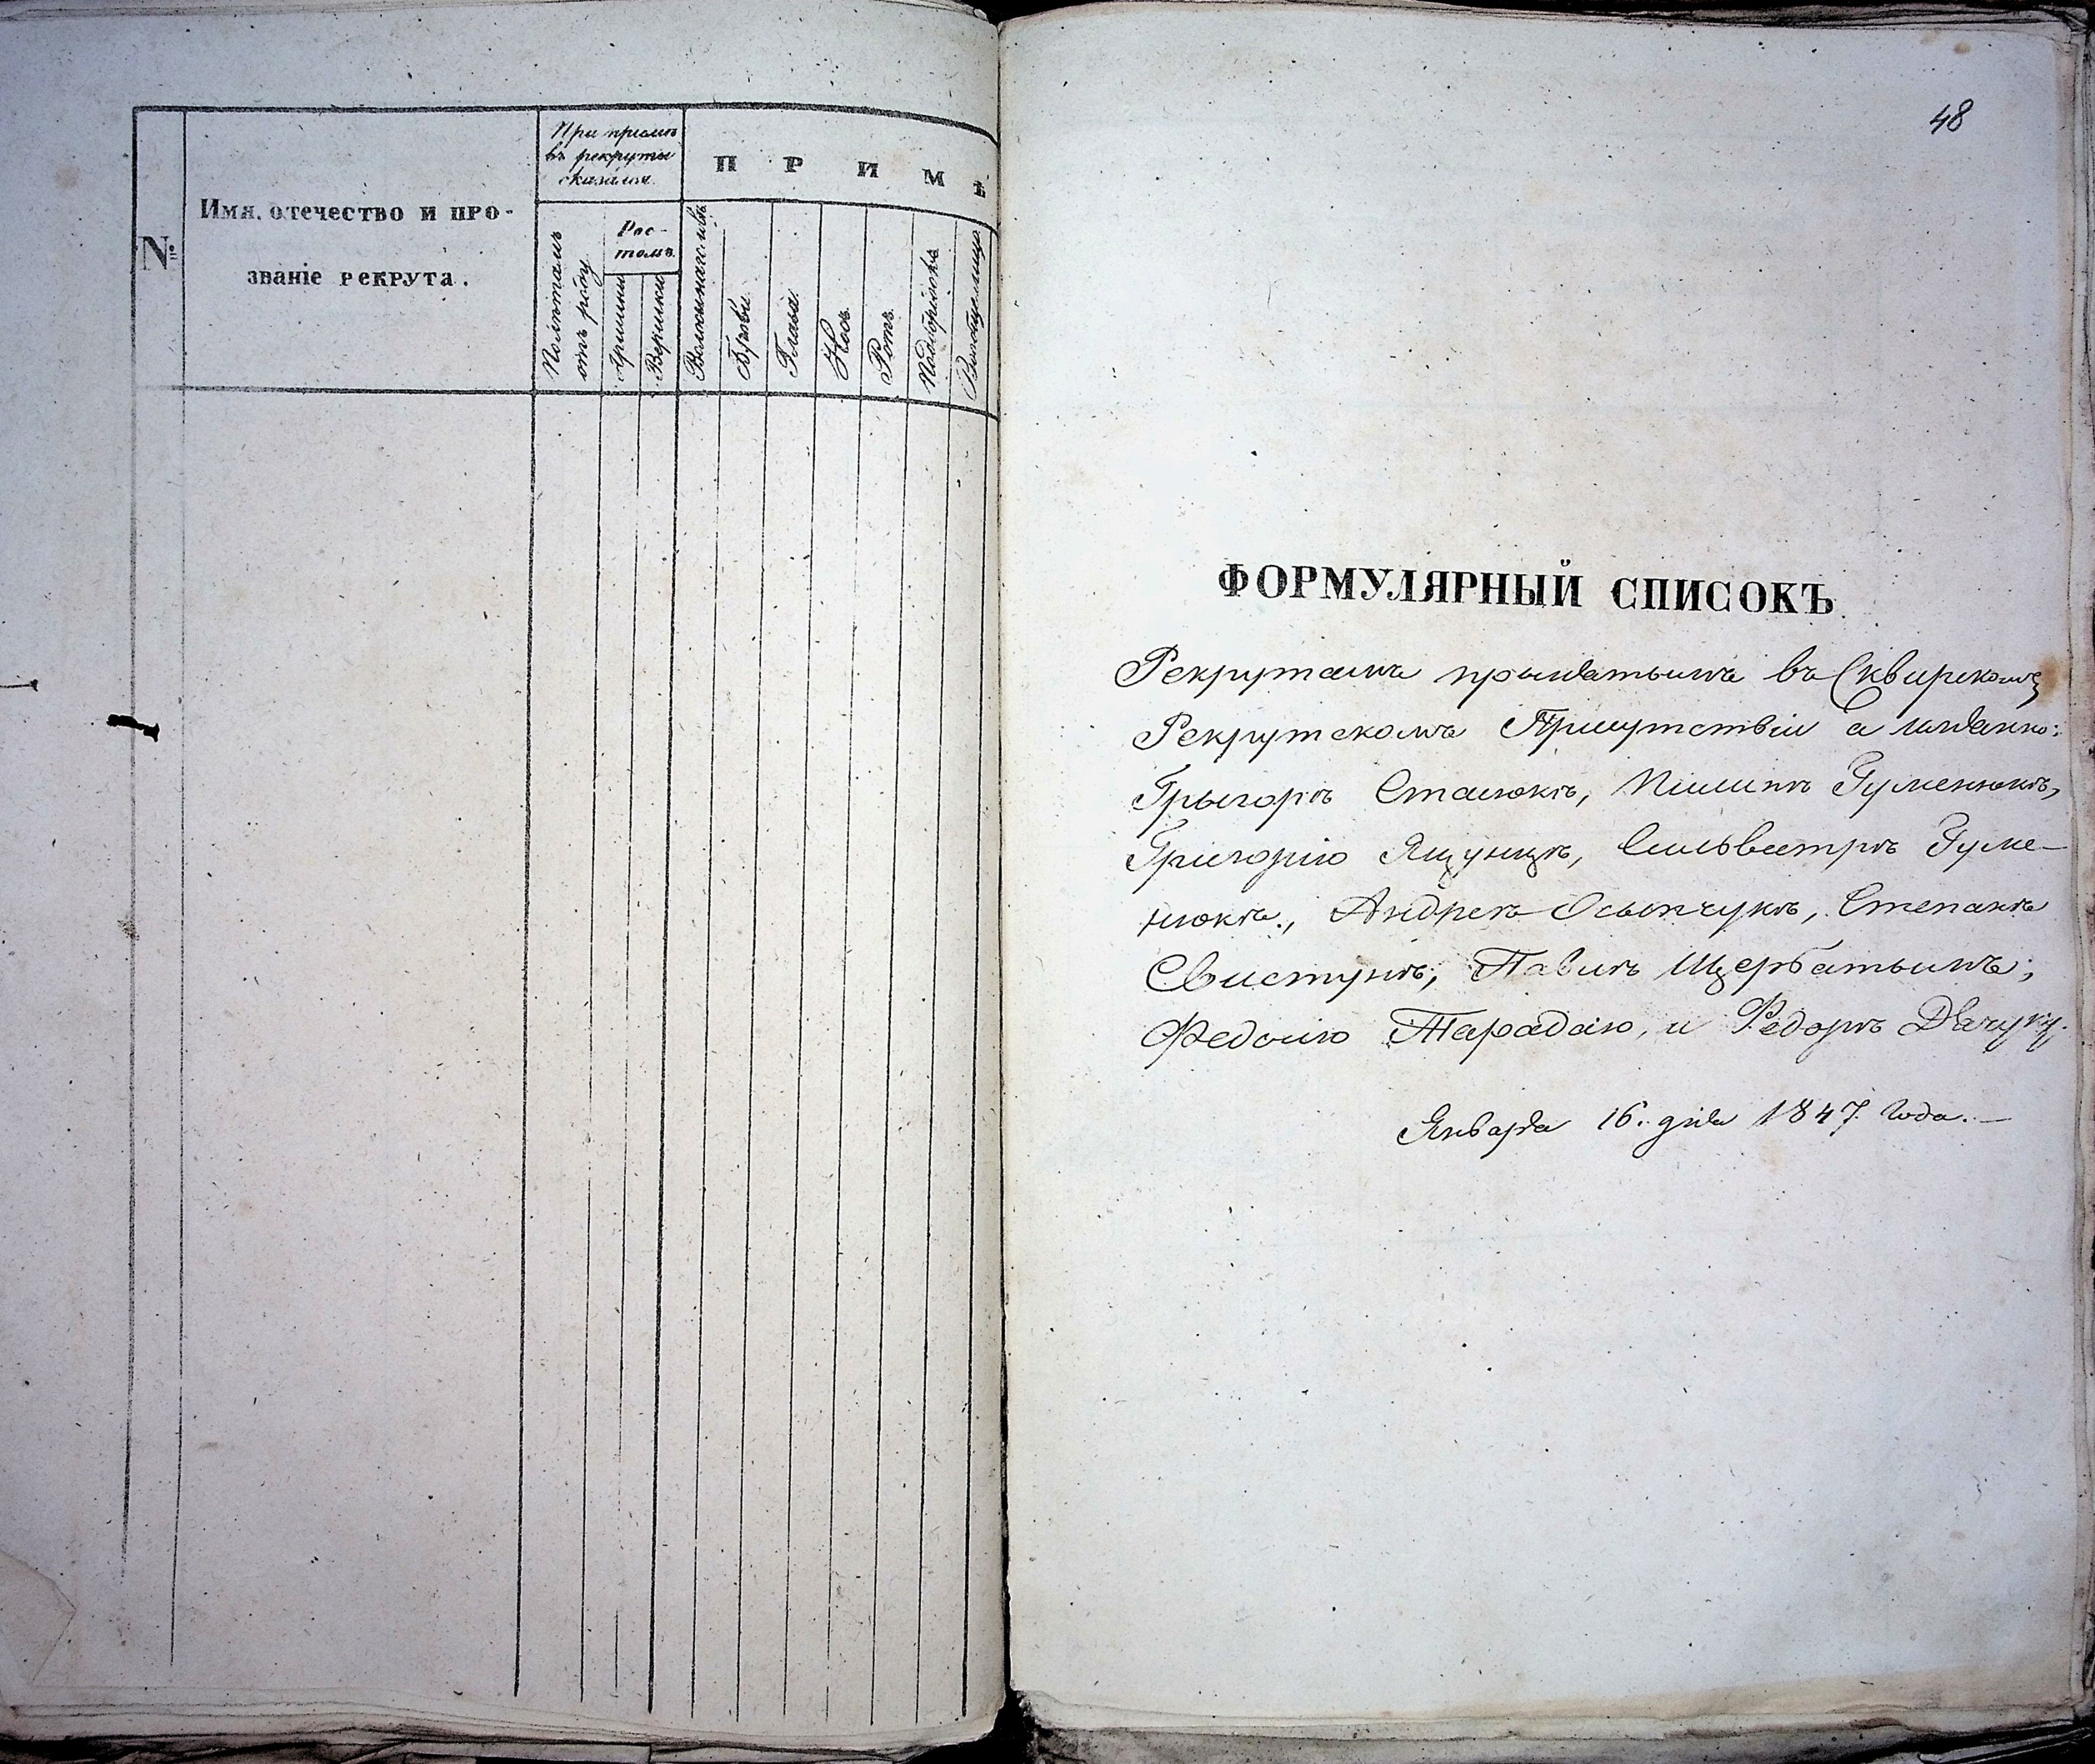 №
Имя, отечество и про-
званіе рекрута.
При приемѣ
въ рекруты
оказался.
Полѣтамъ
отъ роду
Рос-
томъ.
Аршини
Вершки
П Р И М Ѣ
Волосынаголовѣ
Брови
Глаза
Носъ.
Ротъ.
Подбородокъ
Вообщелицо
48
ФОРМУЛЯРНЫЙ СПИСОКЪ
Рекрутамъ прынятымъ въ Сквирскомъ
Рекрутскомъ Присутствіи а имянно:
Грыгоръ Стасюкъ, Пилипъ Гуменюкъ,
Григорію Ящунцъ, Сильвестръ Гуме-
нюкъ., Андреъ Осыпчукъ, Степанъ
Свистунъ; Павилъ Щербатымъ;
Федосию Тарадаю, и Федоръ Дячуку.
Января 16. дня 1847 Года.—